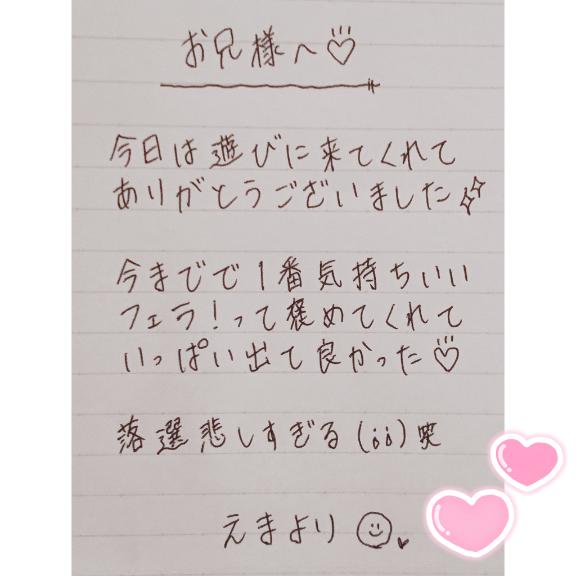 お兄様へ♡
今日は遊びに来てくれて
ありがとうございました✨
今までで1番気持ちいい
フェラ！って褒めてくれて
いっぱい出て良かった♡
落選悲しすぎる(;;)笑
えまより☺♥